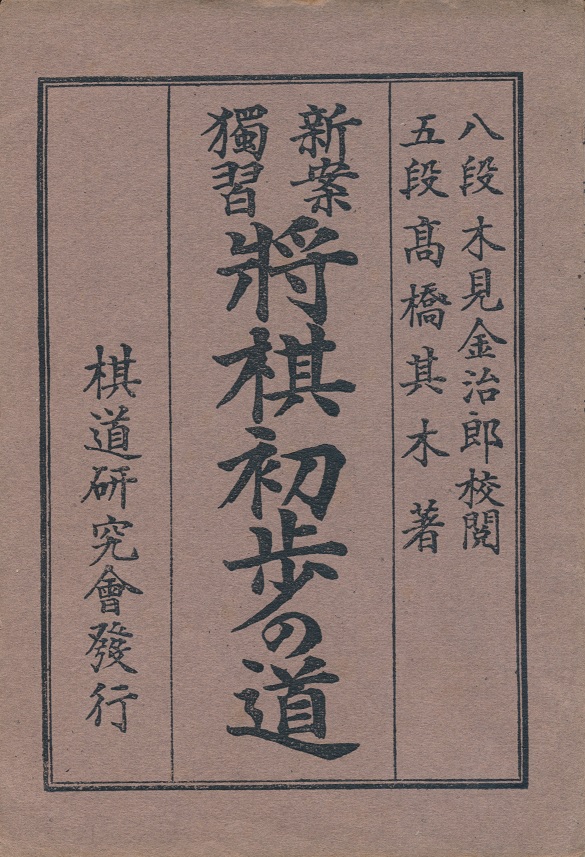 八段 木見金治郎校閲
五段 髙橋其木 著
新案
獨習
將棋初歩の道
棋道研究會發行